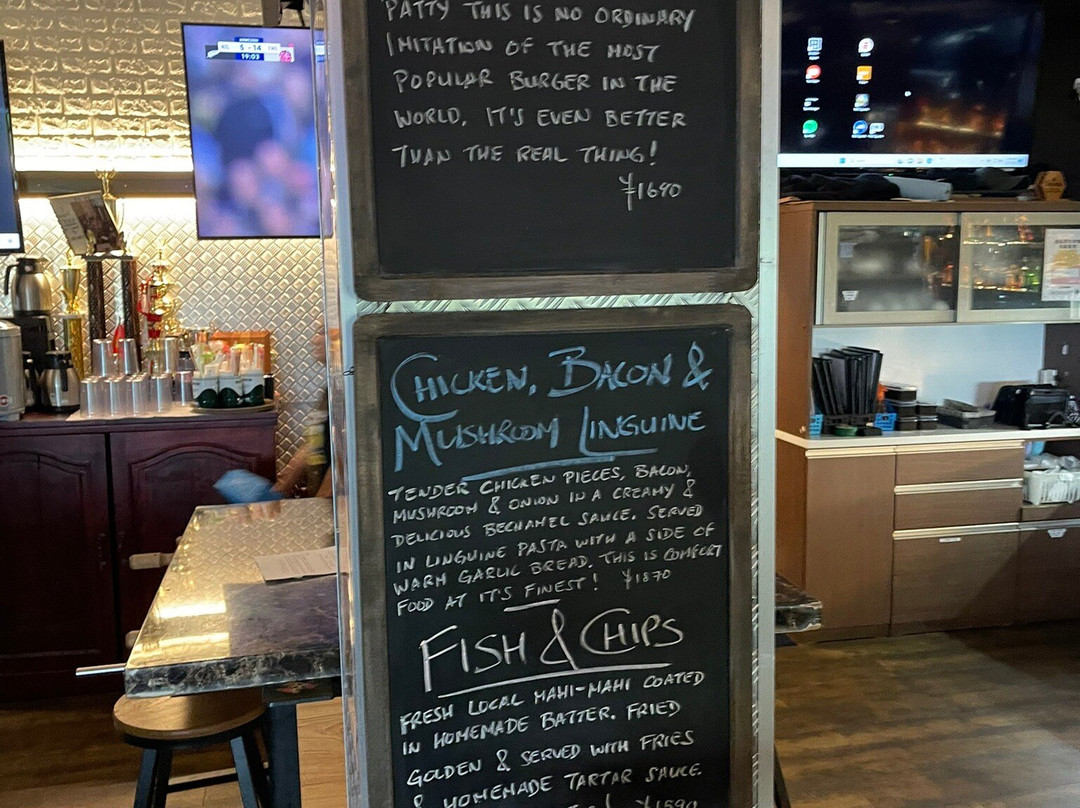 PATTY THIS IS NO ORDINARY
IMITATION OF THE MOST
POPULAR BURGER IN THE
WORLD, IT'S EVEN BETTER
THAN THE REAL THING!
¥1690
5 - 14
19:03
CHICKEN, BACON &
MUSHROOM LINGUINE
TENDER CHICKEN PIECES, BACON,
MUSHROOM & ONION IN A CREAMY &
DELICIOUS BECHAMEL SAUCE. SERVED
IN LINGUINE PASTA WITH A SIDE OF
WARM GARLIC BREAD. THIS IS COMFORT
FOOD AT IT'S FINEST! ¥1870
FISH & CHIPS
FRESH LOCAL MAHI-MAHI COATED
IN HOMEMADE BATTER. FRIED
GOLDEN & SERVED WITH FRIES
& HOMEMADE TARTAR SAUCE.
¥1590